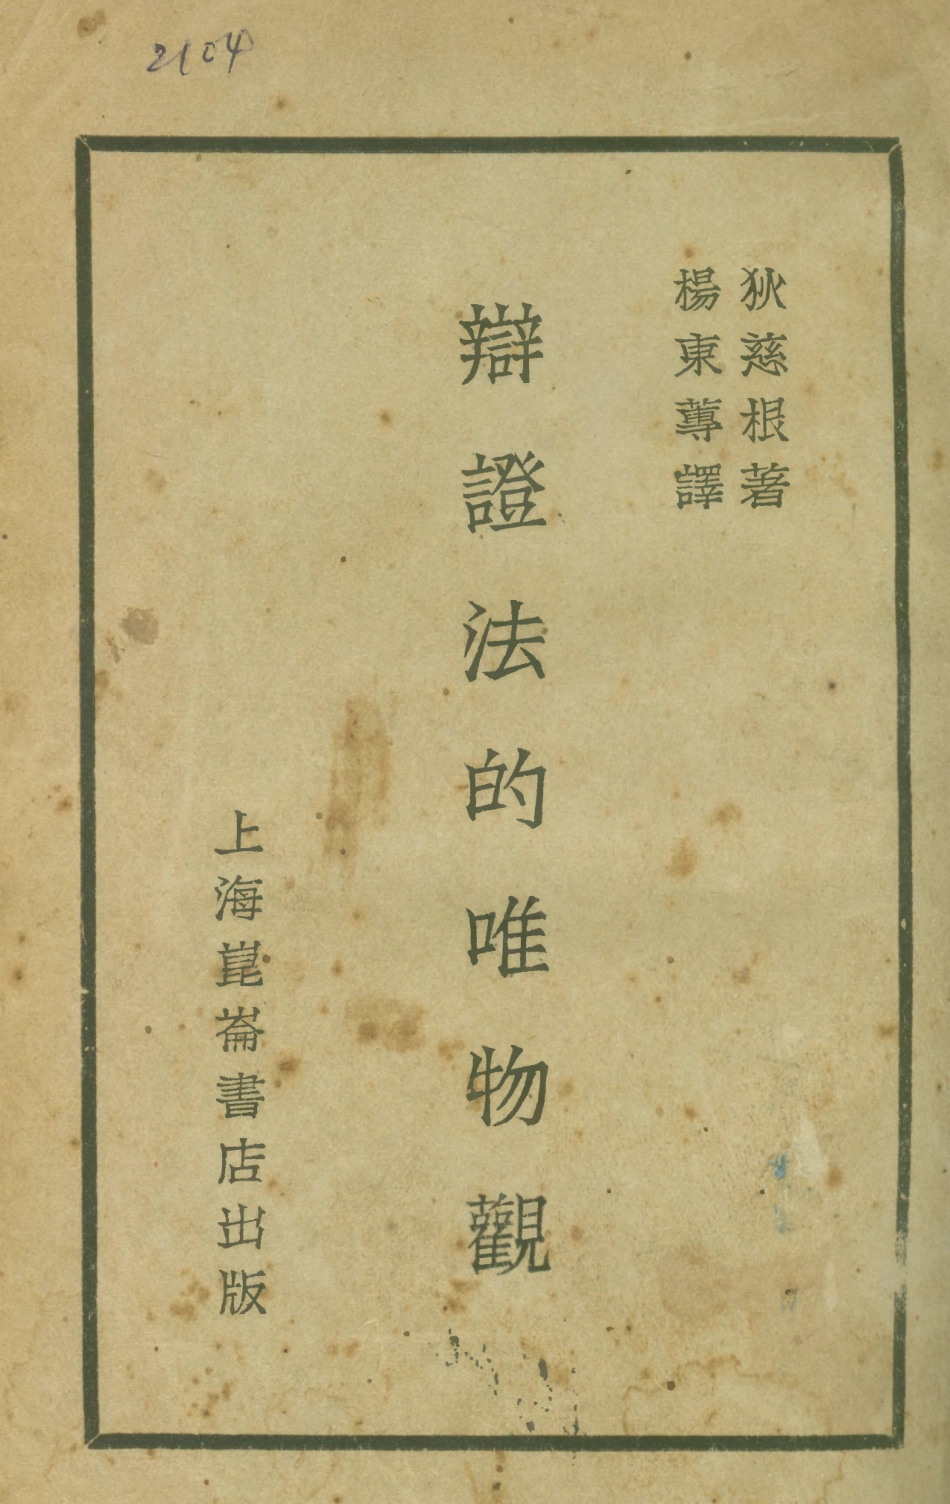 2104
狄慈根著
楊東蓴譯
辯證法的唯物觀
上海崑崙書店出版